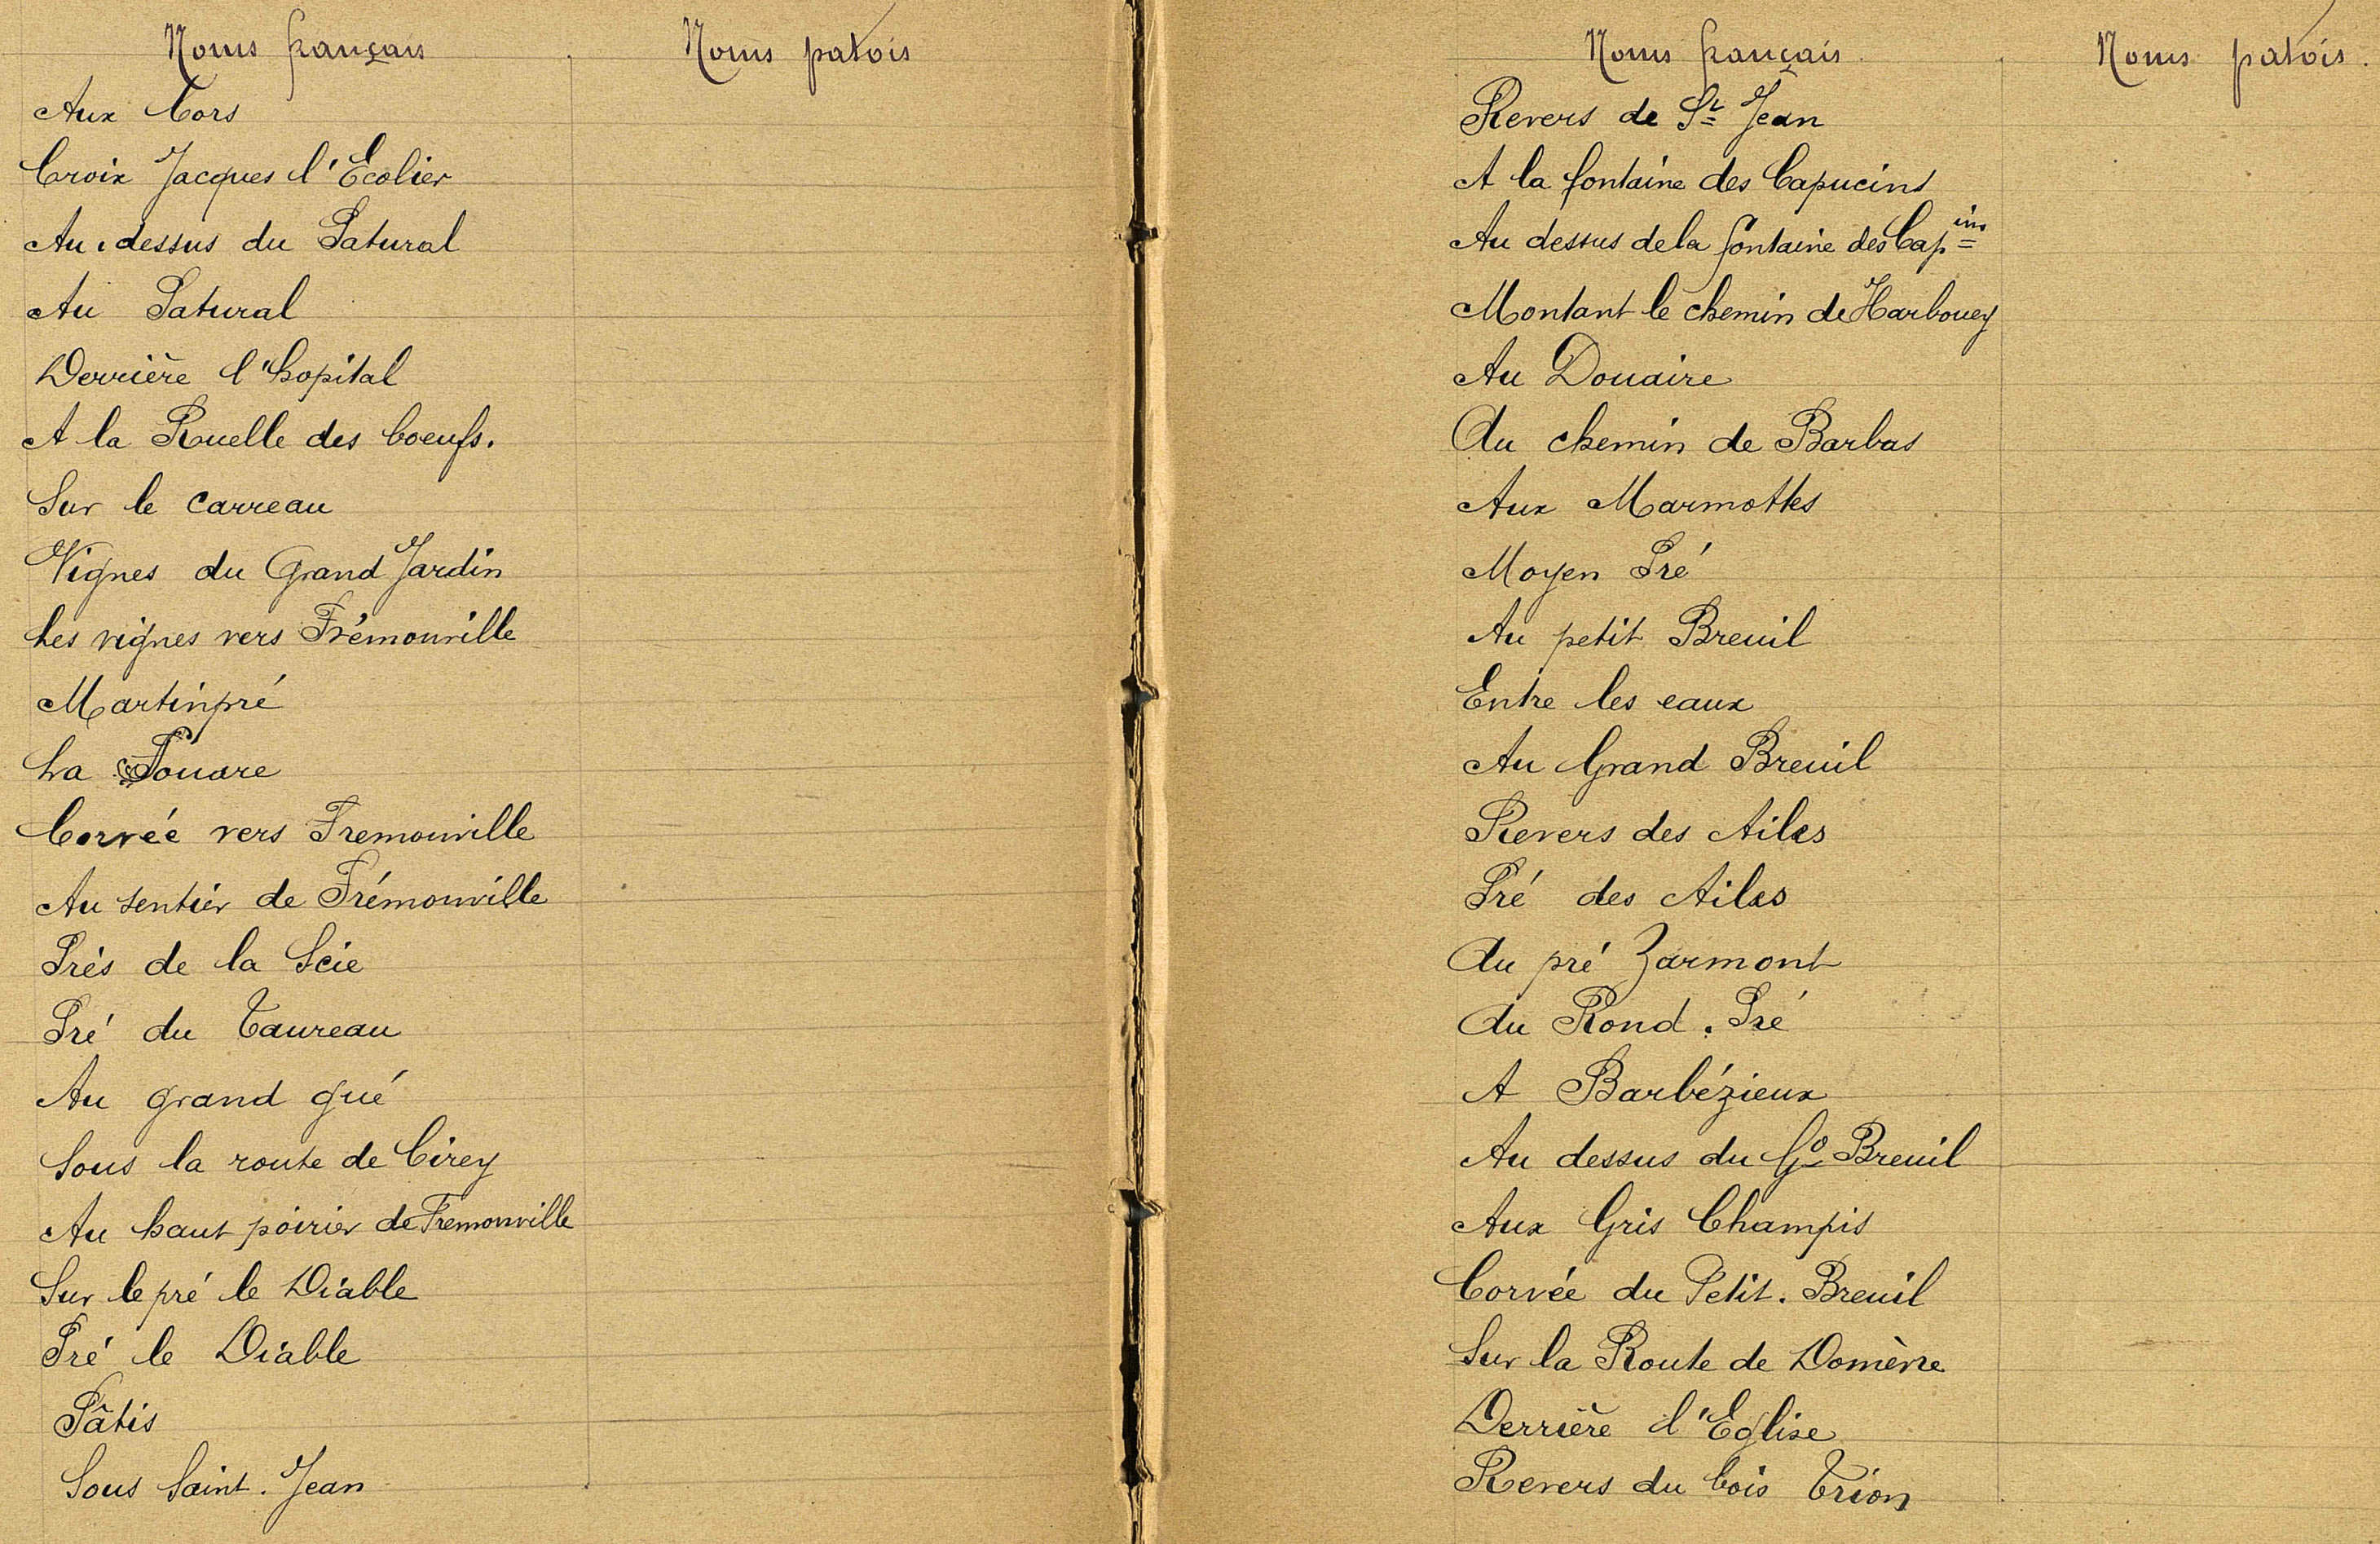 Noms français Noms patois
Aux Cors
Croix Jacques l'Ecolier
Au-dessus du Patural
Au Patural
Derrière l'hopital
A la Ruelle des boeufs.
Sur le carreau
Vignes du Grand Jardin
Les vignes vers Frémonville
Martinpré
La
Corvée vers Fremonville
Au sentier de Frémonville
Prés de la Scie
Pré du Taureau
Au grand gué
Sous la route de Cirey
Au haut poirier de Fremonville
Sur le pré le Diable
Pré le Diable
Pâtis
Sous Saint-Jean
Noms français Noms patois.
Revers de St Jean
A la fontaine des Capucins
Au dessus de la fontaine des Capins
Montant le chemin de Harbouey
Au Douaire
Au chemin de Barbas
Aux Marmottes
Moyen Pré
Au petit Breuil
Entre les eaux
Au Grand Breuil
Revers des Ailes
Pré des Ailes
Au pré Zarmont
Au Rond-Pré
A Barbézieux
Au dessus du Gd Breuil
Aux Gris Champis
Corvée du Petit-Breuil
Sur la Route de Domèvre
Derrière l'Eglise
Revers du bois Trion